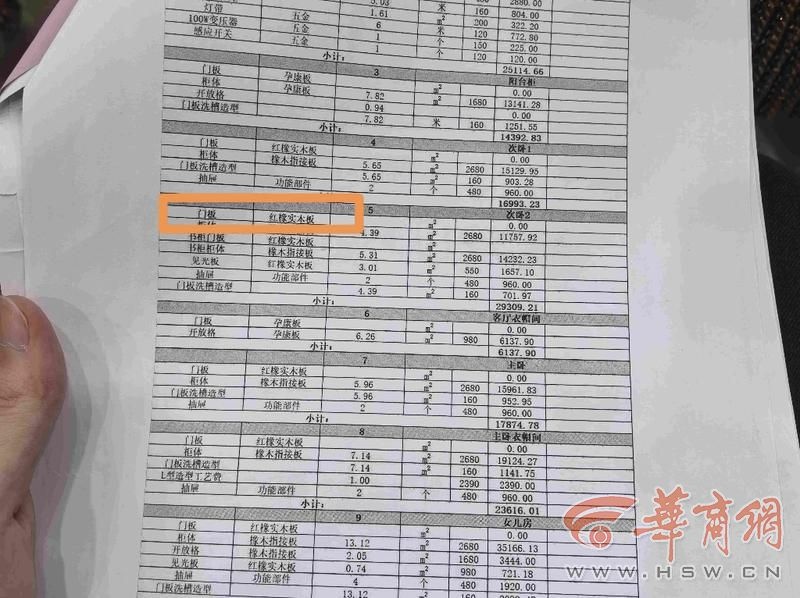 5.03 米 2880.00
灯带 1.61 m² 160 804.00
100W变压器 五金 6 米 200 322.20
感应开关 五金 1 个 120 772.80
五金 1 个 150 225.00
个 120 120.00
小计: 25114.66
3 阳台柜
门板 孕康板 m² 0.00
柜体 孕康板 7.82 m² 1680 13141.28
开放格 0.94 0.00
门板洗槽造型 7.82 米 160 1251.55
小计: 14392.83
4 次卧1
门板 红橡实木板 m² 0.00
柜体 橡木指接板 5.65 m² 2680 15129.95
门板洗槽造型 5.65 m² 160 903.28
抽屉 功能部件 2 个 480 960.00
16993.23
5 次卧2
门板 红橡实木板 m² 0.00
柜体 4.39 m² 2680 11757.92
书柜门板 红橡实木板 m²
书柜柜体 橡木指接板 5.31 m² 2680 14232.23
见光板 红橡实木板 3.01 m² 550 1657.10
抽屉 功能部件 2 个 480 960.00
门板洗槽造型 4.39 m² 160 701.97
小计: 29309.21
6 客厅衣帽间
门板 孕康板 m² 0.00
开放格 孕康板 6.26 m² 980 6137.90
小计: 6137.90
7 主卧
门板 红橡实木板 m² 0.00
柜体 橡木指接板 5.96 m² 2680 15961.83
门板洗槽造型 5.96 m² 160 952.95
抽屉 功能部件 2 个 480 960.00
小计: 17874.78
8 主卧衣帽间
门板 红橡实木板 m² 0.00
柜体 橡木指接板 7.14 m² 2680 19124.27
门板洗槽造型 7.14 m² 160 1141.75
L型造型工艺费 1.00 2390 2390.00
抽屉 功能部件 2 个 480 960.00
小计: 23616.01
9 女儿房
门板 红橡实木板 m² 0.00
柜体 橡木指接板 13.12 m² 2680 35166.13
开放格 橡木指接板 2.05 m² 1680 3444.00
见光板 红橡实木板 0.74 m² 980 721.18
抽屉 功能部件 4 个 480 1920.00
门板洗槽造型 13.12 m² 160
華商網
WWW.HSW.CN